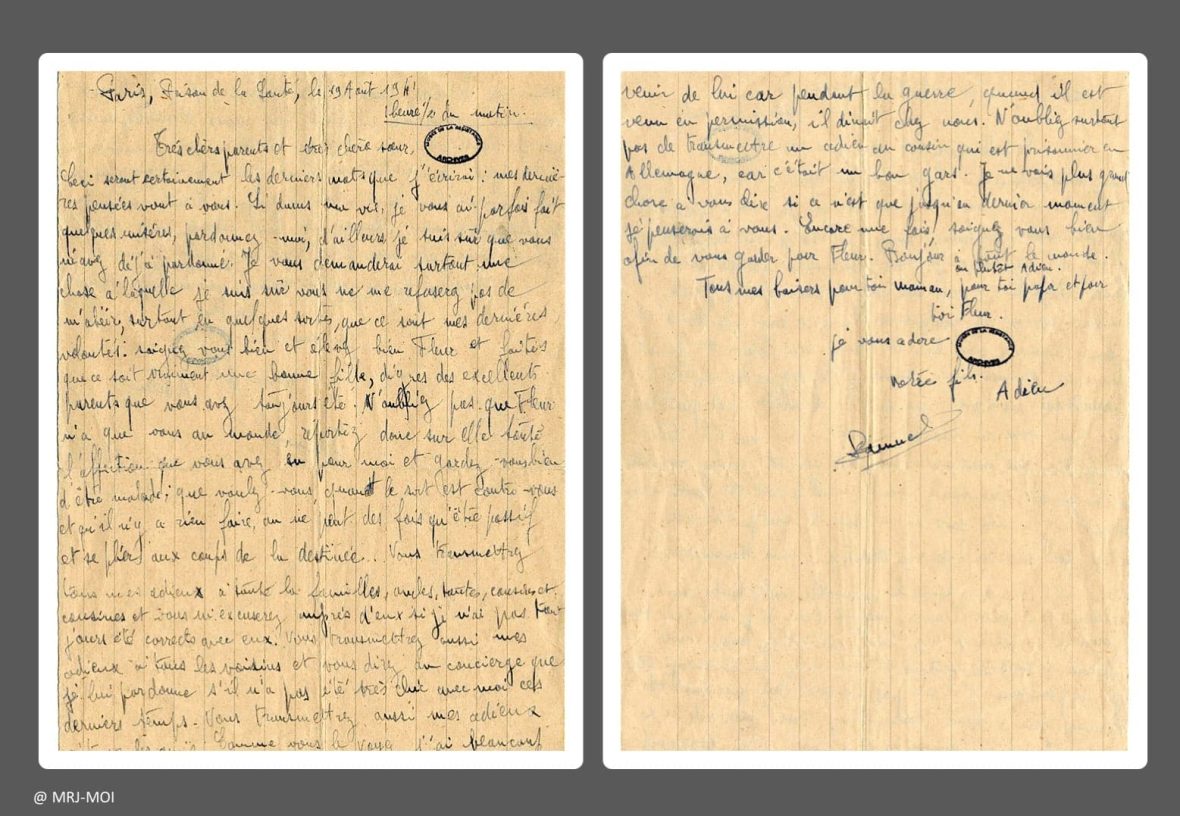 Paris, Prison de la Santé, le 19 Août 1941
1 heure 1/2 du matin.
Très chers parents et très chère sœur,
MUSÉE DE LA RÉSISTANCE
ARCHIVES
Ceci seront certainement les derniers mots que j'écrirai : mes derniè-
res pensées vont à vous. Si durant ma vie, je vous ai parfois fait
quelques misères, pardonnez-moi, d'ailleurs je suis sûr que vous
m'avez déjà pardonné. Je vous demanderai surtout une
chose à laquelle je suis sûr vous ne me refuserez pas de
m'obéir, surtout en quelques sortes, que ce sont mes dernières
volontés : soignez vous bien et élevez bien Fleur et faites
que ce soit vraiment une bonne fille, dignes des excellents
parents que vous avez toujours été. N'oubliez pas que Fleur
n'a que vous au monde, reportez donc sur elle toute
l'affection que vous avez eu pour moi et gardez-vous bien
d'être malade ; que voulez-vous quand le sort est contre-vous
et qu'il n'y a rien faire, on ne peut des fois qu'être passif
et se plier aux coups de la destinée... Vous transmettrez
tous mes adieux à toute la familles, oncles, tantes, cousins et
cousines et vous m'excuserez auprès d'eux si je n'ai pas tou-
jours été corrects avec eux. Vous transmettrez aussi mes
adieux à tous les voisins et vous direz au concierge que
je lui pardonne s'il n'a pas été très chic avec moi ces
derniers temps. Vous transmettrez aussi mes adieux
Comme vous le voyez j'ai beaucoup
venir de lui car pendant la guerre, quand il est
venu en permission, il dinait chez nous. N'oubliez surtout
pas de transmettre un adieu au cousin qui est prisonnier en
Allemagne, car c'était un bon gars. Je ne vois plus grand
chose à vous dire si ce n'est que jusqu'au dernier moment
je penserois à vous. Encore une fois, soignez vous bien
afin de vous garder pour Fleur. Bonjour à tout le monde.
ou plutôt adieu.
Tous mes baisers pour toi maman, pour toi papa et pour
toi Fleur.
je vous adore
MUSÉE DE LA RÉSISTANCE
ARCHIVES
votre fils.
Adieu
Samuel
@ MRJ-MOI